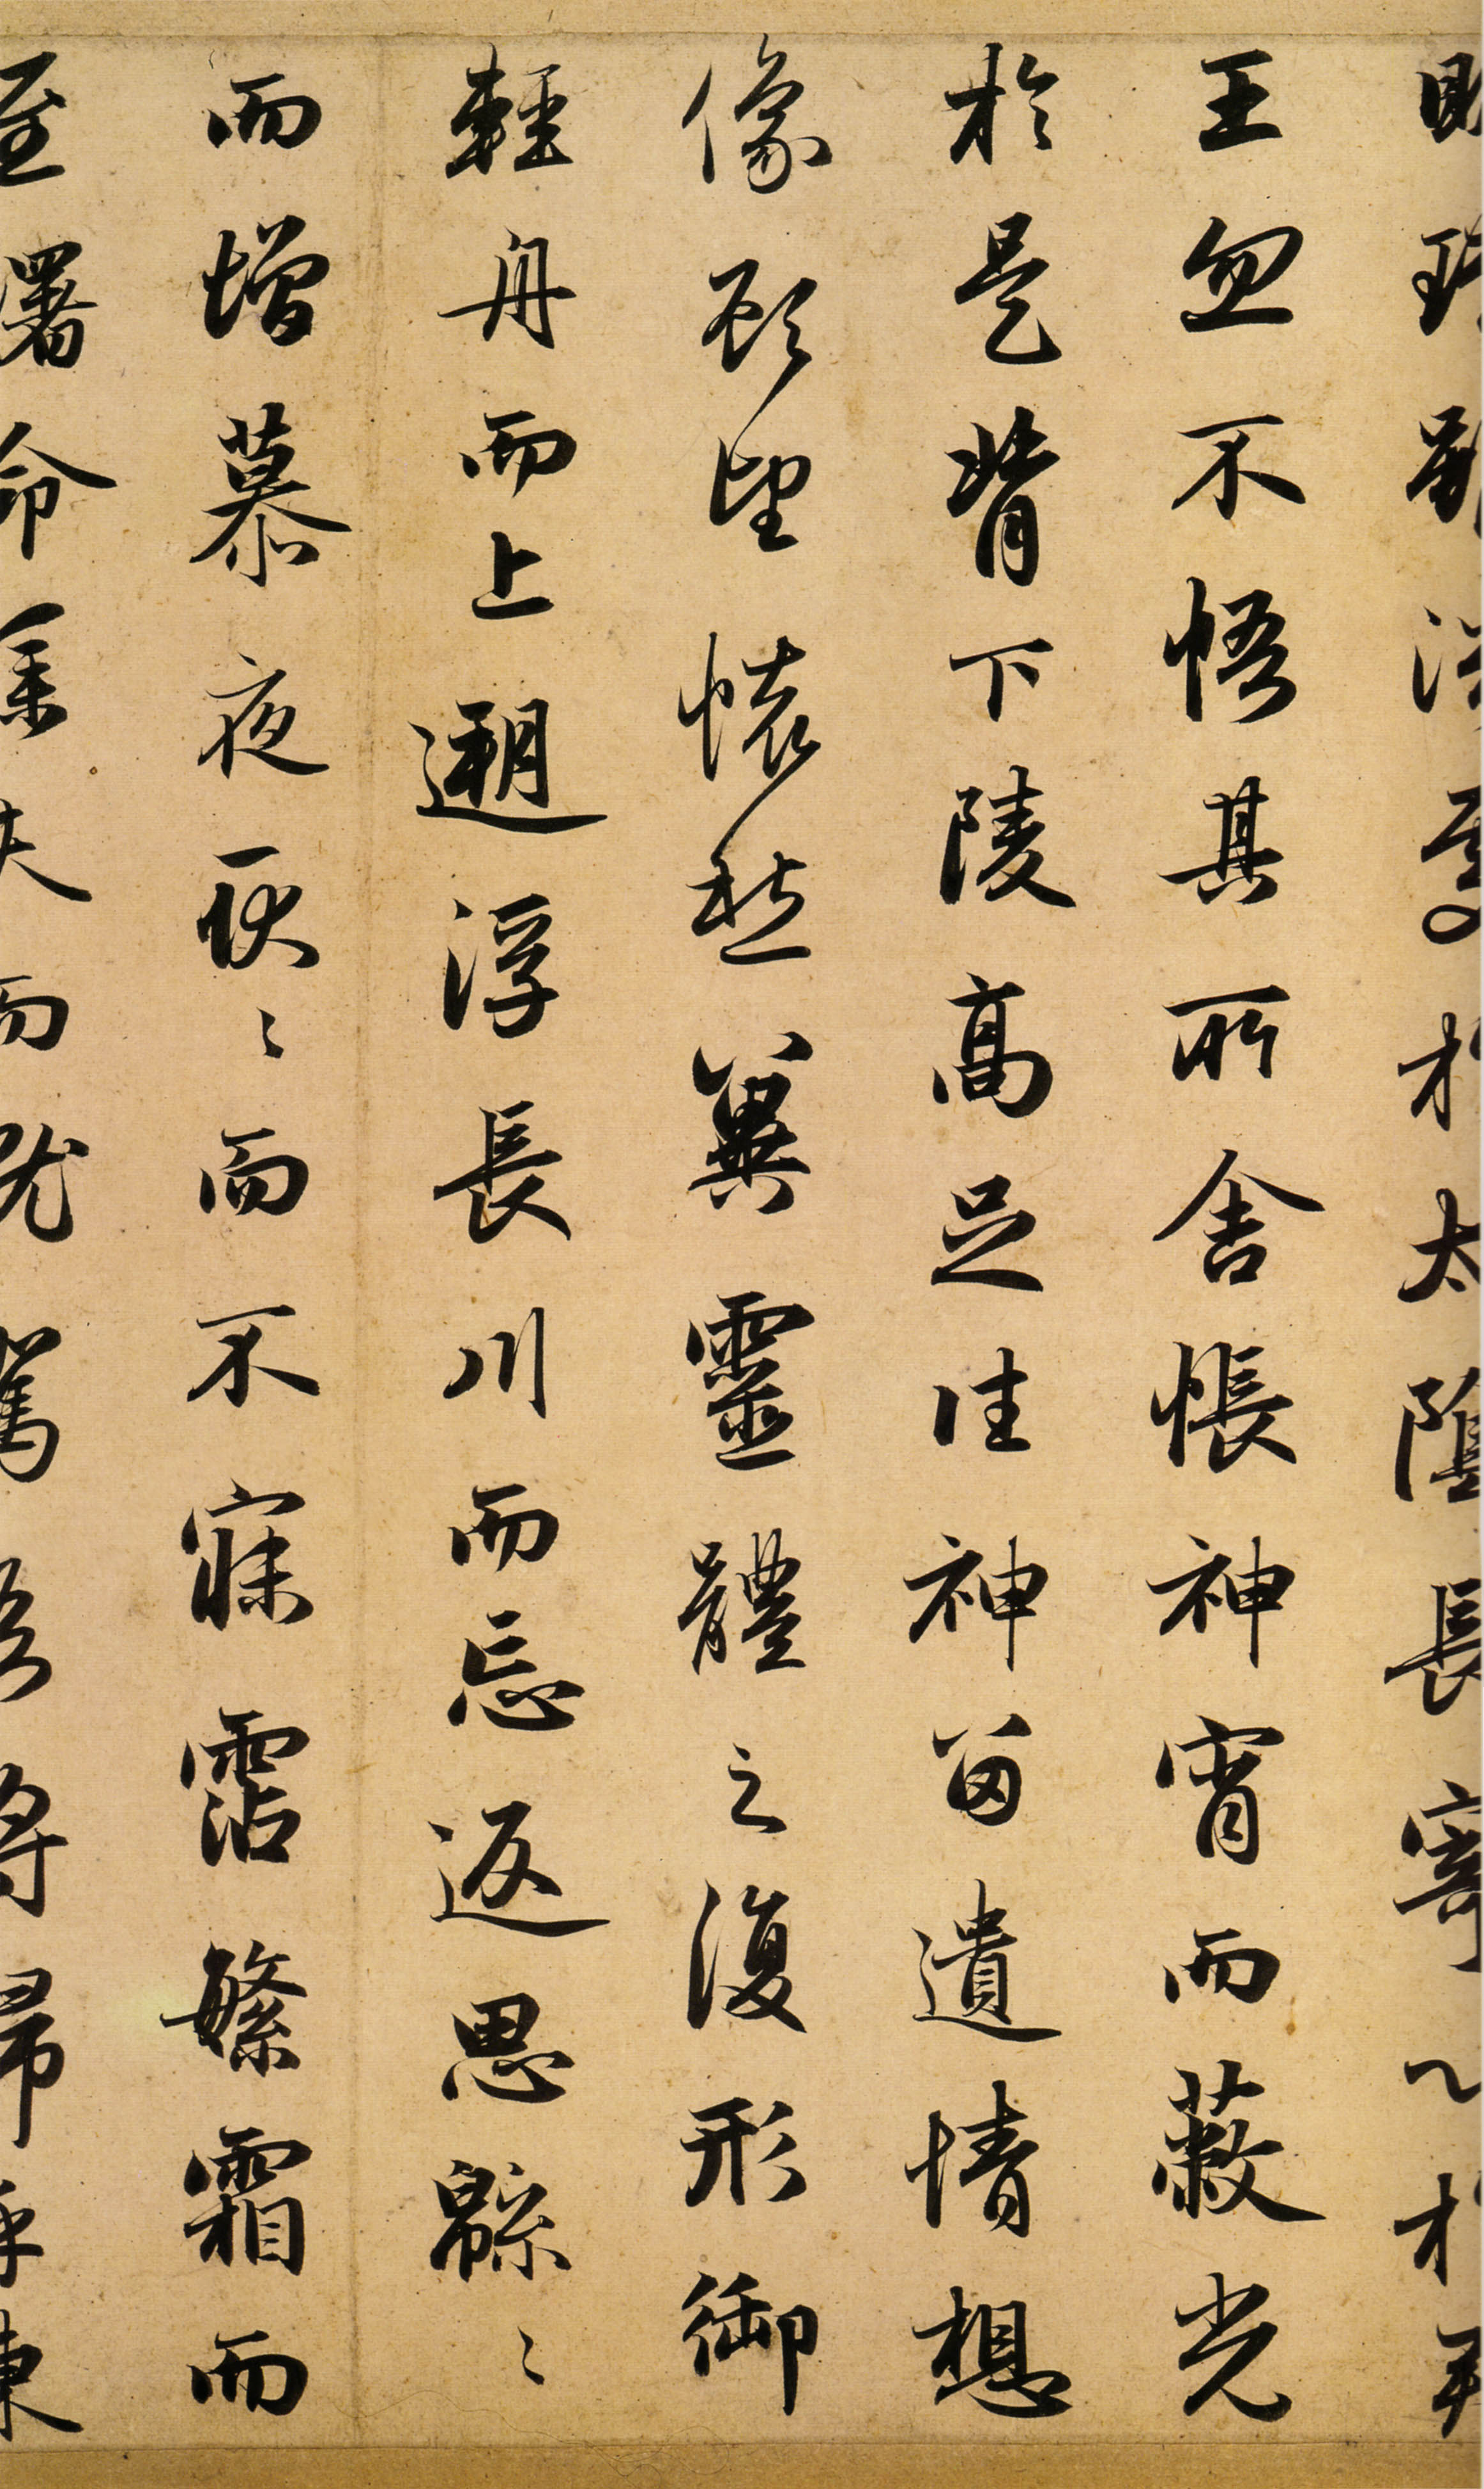 明璫雖潛處於太陰長寄心於君
王忽不悟其所舍悵神宵而蔽光
於是背下陵高足往神留遺情想
像顧望懷愁冀靈體之復形御
輕舟而上遡浮長川而忘返思緜〻
而增慕夜耿〻而不寐霑繁霜而
至曙命僕夫而就駕吾將歸乎東